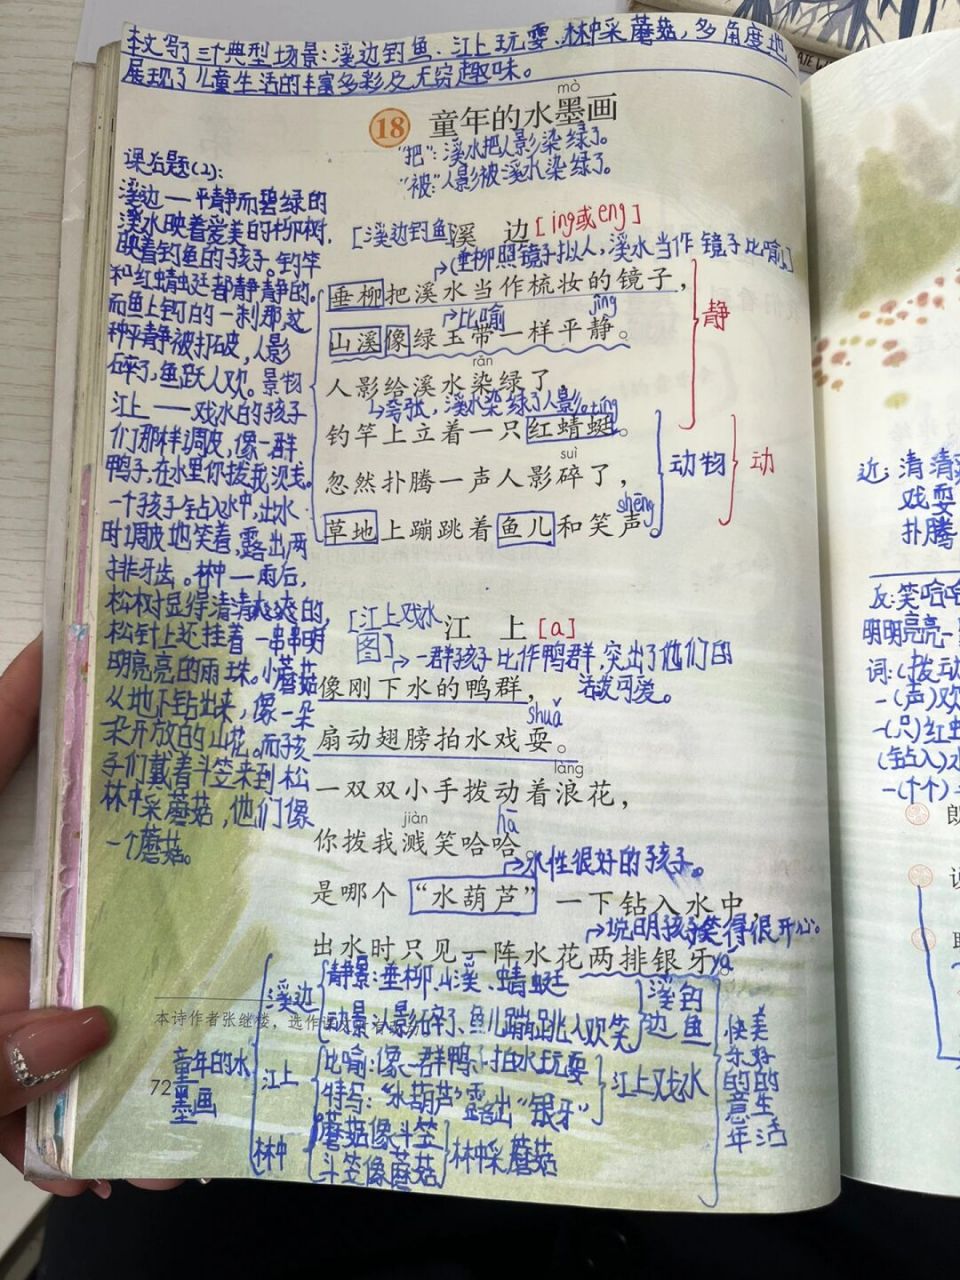 本文写了三个典型场景:溪边钓鱼、江上玩耍、林中采蘑菇,多角度地
展现了儿童生活的丰富多彩及无穷趣味。
mò
18 童年的水墨画
"把":溪水把人影染绿了。
"被"人影被溪水染绿了。
课后题(2):
溪边一平静而碧绿的
溪水映着爱美的柳树,
映着钓鱼的孩子。钓竿
和红蜻蜓都静静的。
而鱼上钩的一刹那,这
种平静被打破,人影
碎了,鱼跃人欢。景物
江上——戏水的孩子
们那样调皮,像一群
鸭子,在水里你拨我溅。
一个孩子钻入水中,出水
时调皮地笑着,露出两
排牙齿。林中一雨后,
松树显得清清爽爽的,
松针上还挂着一串串明
明亮亮的雨珠。小蘑菇
从地下钻出来,像一朵
朵开放的山花。而孩
子们戴着斗笠来到松
林中采蘑菇,他们像
一个蘑菇。
[溪边钓鱼]溪 边[ing或eng]
(垂柳照镜子拟人,溪水当作镜子比喻)
垂柳把溪水当作梳妆的镜子,
比喻 jìng
山溪像绿玉带一样平静。
rǎn
人影给溪水染绿了
夸张,溪水染绿了人影。tíng
钓竿上立着一只红蜻蜓。
suì
忽然扑腾一声人影碎了,
shēng
草地上蹦跳着鱼儿和笑声。
静
动物 动
[江上戏水
图]
江 上[a]
一群孩子比作鸭群,突出了他们的
活泼可爱。
像刚下水的鸭群,
shuǎ
扇动翅膀拍水戏耍。
làng
一双双小手拨动着浪花,
jiàn hā
你拨我溅笑哈哈。
水性很好的孩子。
是哪个"水葫芦"一下钻入水中,
说明孩子笑得很开心。
出水时只见一阵水花两排银牙。
yá
本诗作者张继楼,选作
72
童年的水
墨画
溪边
静景:垂柳、山溪、蜻蜓
动景:人影碎了、鱼儿蹦跳人欢笑
溪钓
边鱼
江上
比喻:像一群鸭子拍水玩耍
特写:"水葫芦"露出"银牙"
江上戏水
林中
蘑菇像斗笠
斗笠像蘑菇
林中采蘑菇
快美
乐好
的的
童生
年活
近:清清爽
戏耍
扑腾
反:笑哈哈
明明亮亮一
词:(拨动
-(声)欢
-(只)红虫
(钻入)水
-(个个)
朗